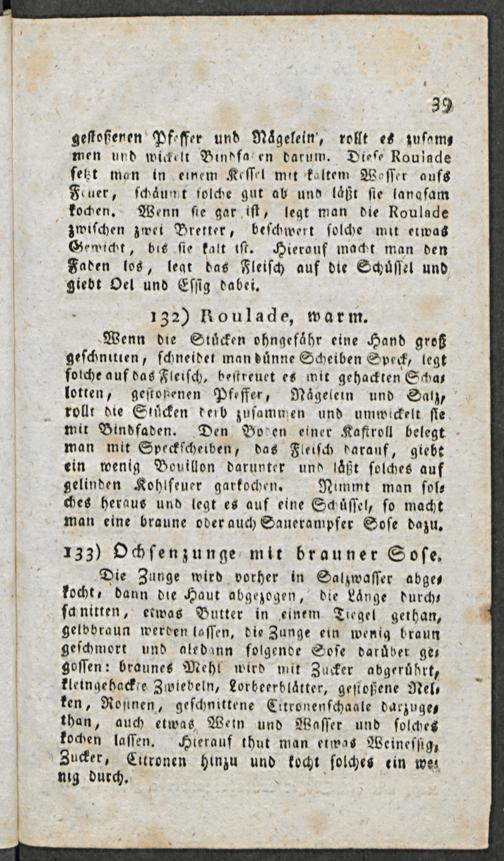 39
gestoßenen Pfeffer und Nägelein, rollt es zusam⸗
men und wickelt Bindfaden darum. Diese Roulade
setzt man in einem Kessel mit kaltem Wasser aufs
Feuer, schäumt solche gut ab und läßt sie langsam
kochen. Wenn sie gar ist, legt man die Roulade
zwischen zwei Bretter, beschwert solche mit etwas
Gewicht, bis sie kalt ist. Hierauf macht man den
Faden los, legt das Fleisch auf die Schüssel und
giebt Oel und Essig dabei.
132) Roulade, warm.
Wenn die Stücken ohngefähr eine Hand groß
geschnitten, schneidet man dünne Scheiben Speck, legt
solche auf das Fleisch, bestreuet es mit gehackten Scha⸗
lotten, gestoßenen Pfeffer, Nägelein und Salz,
rollt die Stücken derb zusammen und umwickelt sie
mit Bindfaden. Den Boden einer Kastroll belegt
man mit Speckscheiben, das Fleisch darauf, giebt
ein wenig Bouillon darunter und läßt solches auf
gelinden Kohlfeuer garkochen. Nimmt man sol⸗
ches heraus und legt es auf eine Schüssel, so macht
man eine braune oder auch Sauerampfer Sose dazu.
133) Ochsenzunge mit brauner Sose.
Die Zunge wird vorher in Salzwasser abge⸗
kocht, dann die Haut abgezogen, die Länge durch⸗
schnitten, etwas Butter in einem Tiegel gethan,
gelbbraun werden lassen, die Zunge ein wenig braun
geschmort und aledann folgende Sose darüber ge⸗
gossen: braunes Mehl wird mit Zucker abgerührt,
kleingehackte Zwiebeln, Lorbeerblätter, gestoßene Nel⸗
ken, Rosinen, geschnittene Citronenschaale darzuge⸗
than, auch etwas Wein und Wasser und solches
kochen lassen. Hierauf thut man etwas Weinessig,
Zucker, Citronen hinzu und kocht solches ein we⸗
nig durch.